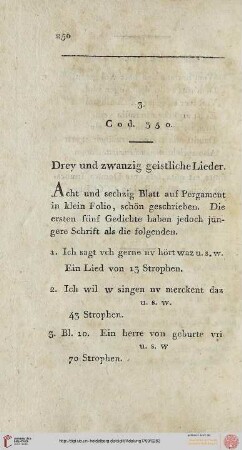 250
3.
Cod. 350.
Drey und zwanzig geistliche Lieder.
Acht und sechzig Blatt auf Pergament
in klein Folio, schön geschrieben. Die
ersten fünf Gedichte haben jedoch jün-
gere Schrift als die folgenden.
1. Ich sagt vch gerne nv hört waz u. s. w.
Ein Lied von 13 Strophen.
2. Ich wil w singen nv merckent daz
u. s. w.
43 Strophen.
3. Bl. 10. Ein herre von geburte vri
u. s. w
70 Strophen.